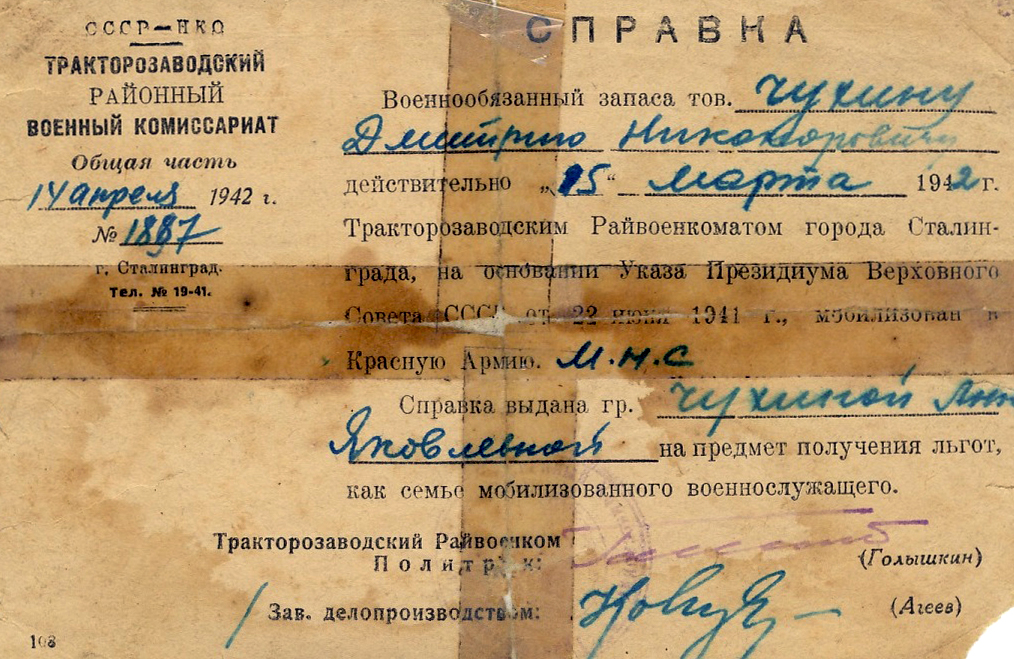 СССР—НКО
ТРАКТОРОЗАВОДСКИЙ
РАЙОННЫЙ
ВОЕННЫЙ КОМИССАРИАТ
Общая часть
14 апреля 1942 г.
№ 1887
г. Сталинград.
Тел. № 19-41.
СПРАВКА
Военнообязанный запаса тов. Чухину
Дмитрию Никоноровичу
действительно „15“ марта 1942 г.
Тракторозаводским Райвоенкоматом города Сталин-
града, на основании Указа Президиума Верховного
Совета СССР от 22 июня 1941 г., мобилизован в
Красную Армию. М.Н.С
Справка выдана гр. Чухиной Анн
Яковлевной на предмет получения льгот,
как семье мобилизованного военнослужащего.
Тракторозаводский Райвоенком
Политрук:
(Голышкин)
Зав. делопроизводством:
(Агеев)
103